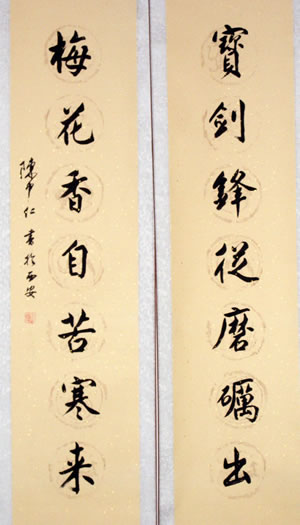 寶劍鋒從磨礪出
梅花香自苦寒來
陳中仁書於西安